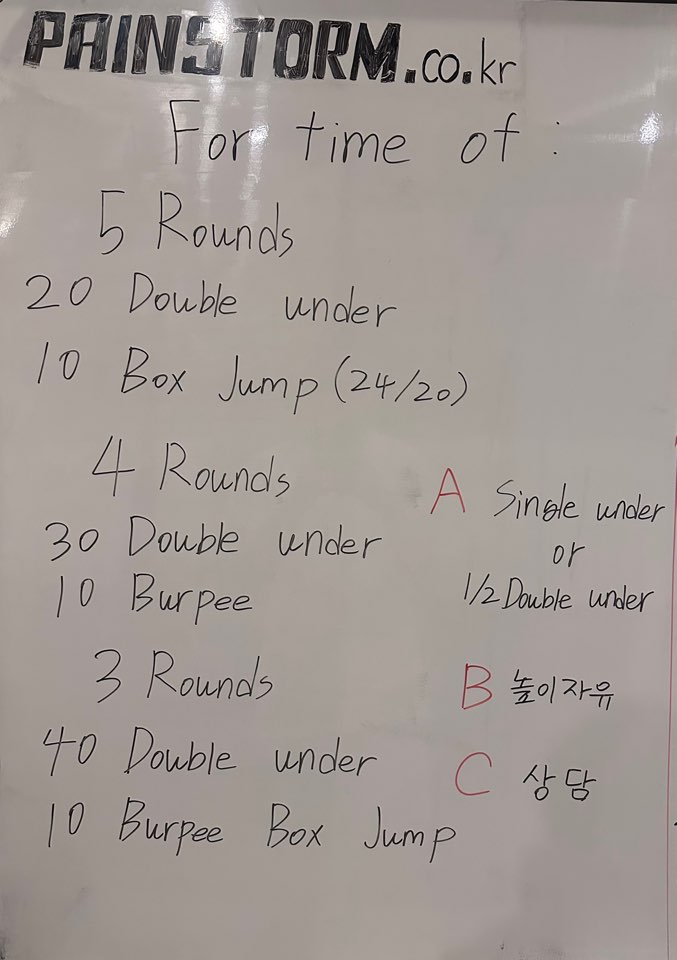 PAINSTORM.co.kr
For time of :
5 Rounds
20 Double under
10 Box Jump (24/20)
4 Rounds
30 Double under
10 Burpee
3 Rounds
40 Double under
10 Burpee Box Jump
A Single under
or
1/2 Double under
B 높이자유
C 상담